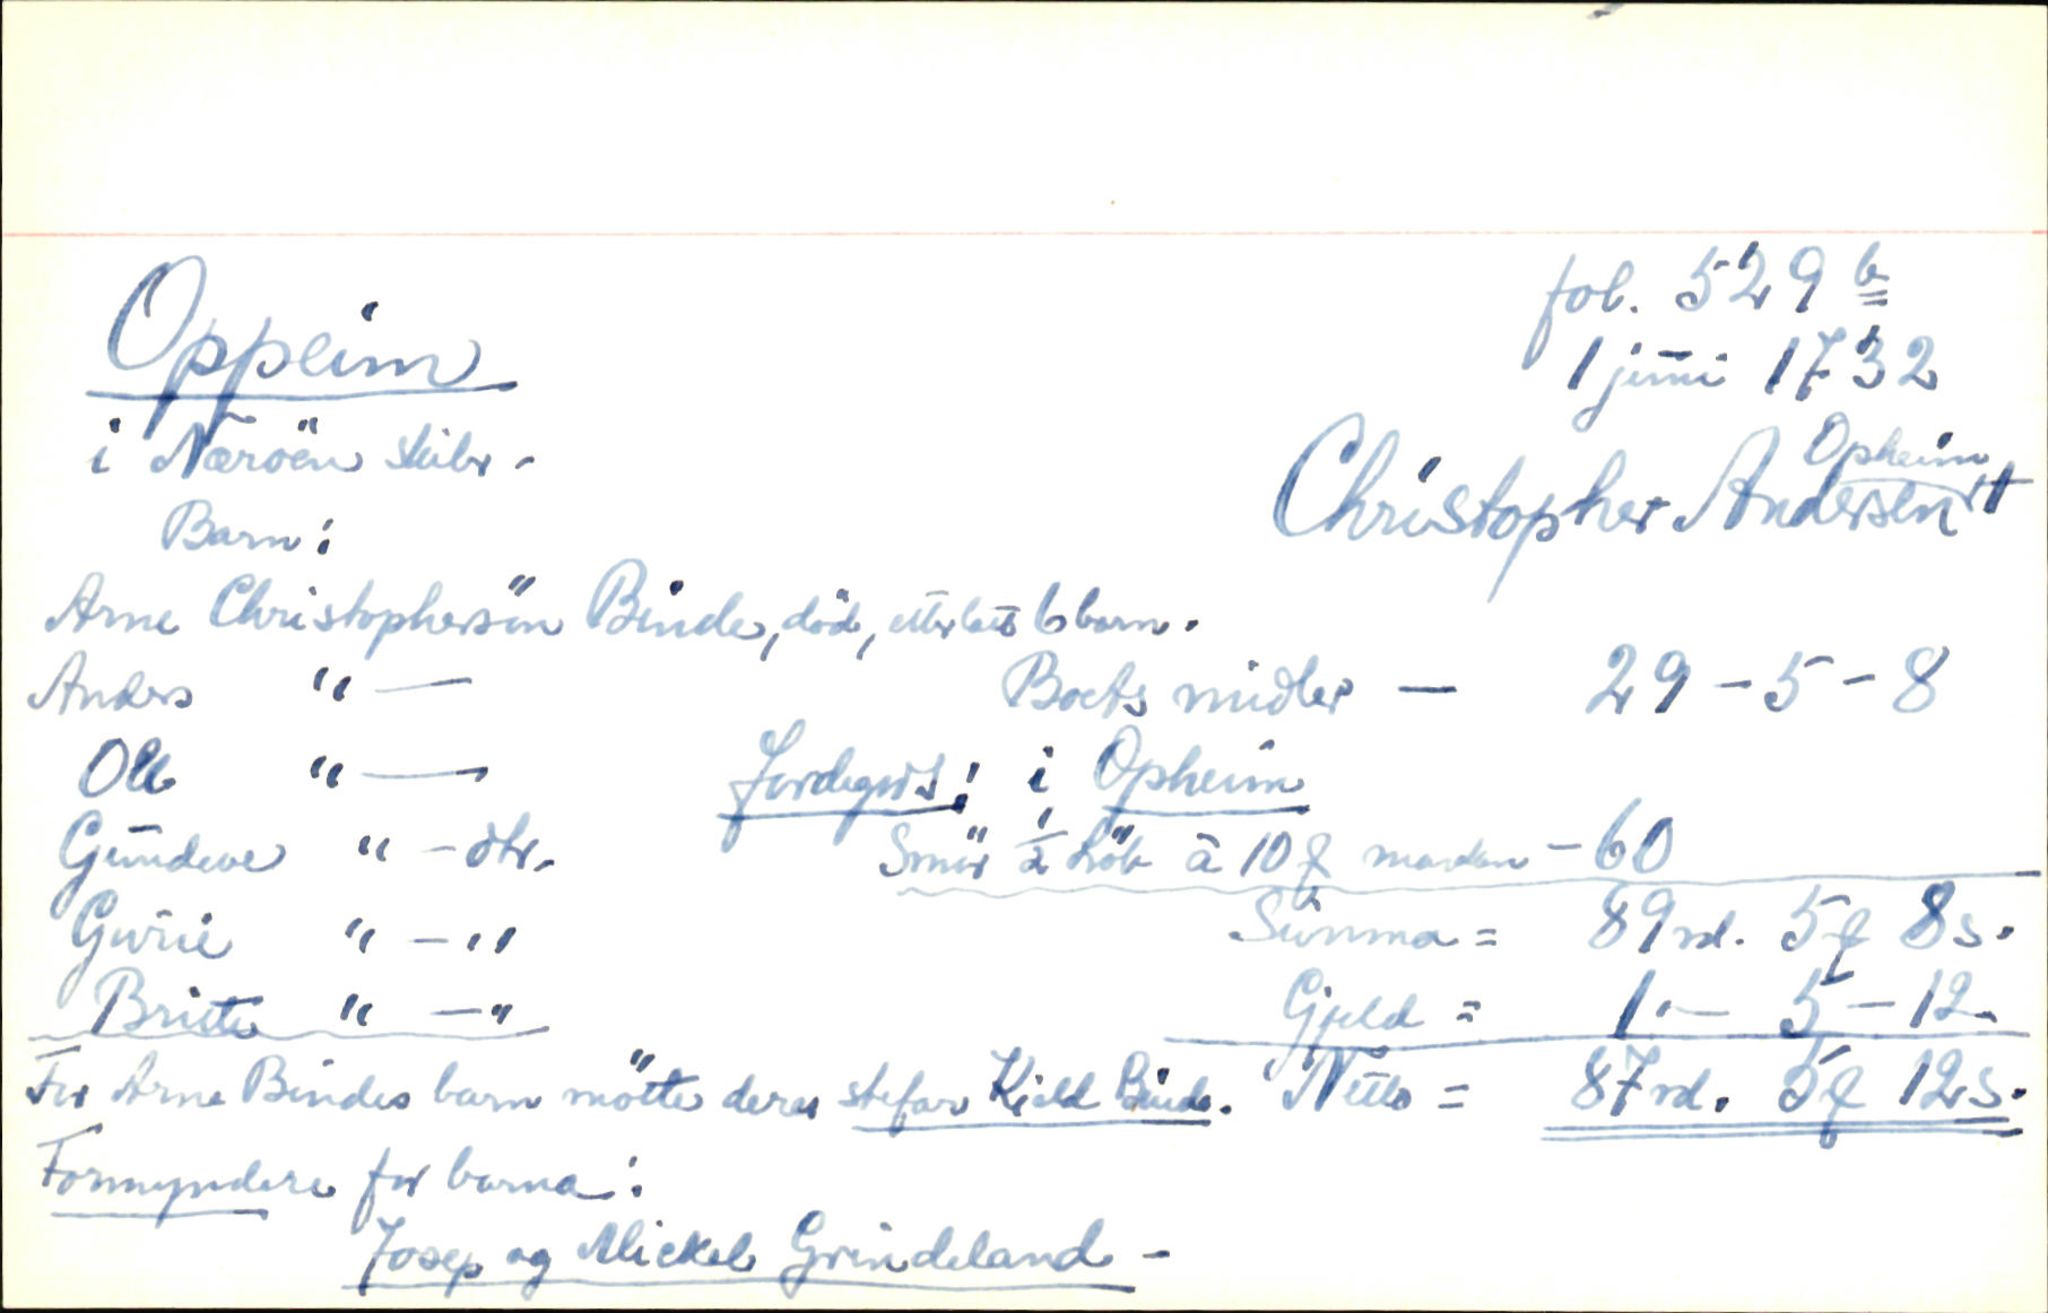 Oppeim
fol. 529 b
1 juni 1732
i Nærøen skibr.
Opheim
Christopher Andersen †
Barn:
Arne Christophersön Binde, död, etterlatt 6 barn.
Anders " —
Boets midler — 29 - 5 - 8
Ole " —
Jordegods: i Opheim
Gündeve " - dtr.
Smör ½ Löb à 10 f marken - 60
Gurie " - "
Summa = 89 rd. 5 f 8 s.
Britte " - "
Gjeld = 1. — 5 - 12.
For Arne Bindes barn mötte deres stefar Kield Binde.
Netto = 87 rd. 5 f 12 s.
Formyndere for barna:
Josep og Mickel Grindeland -